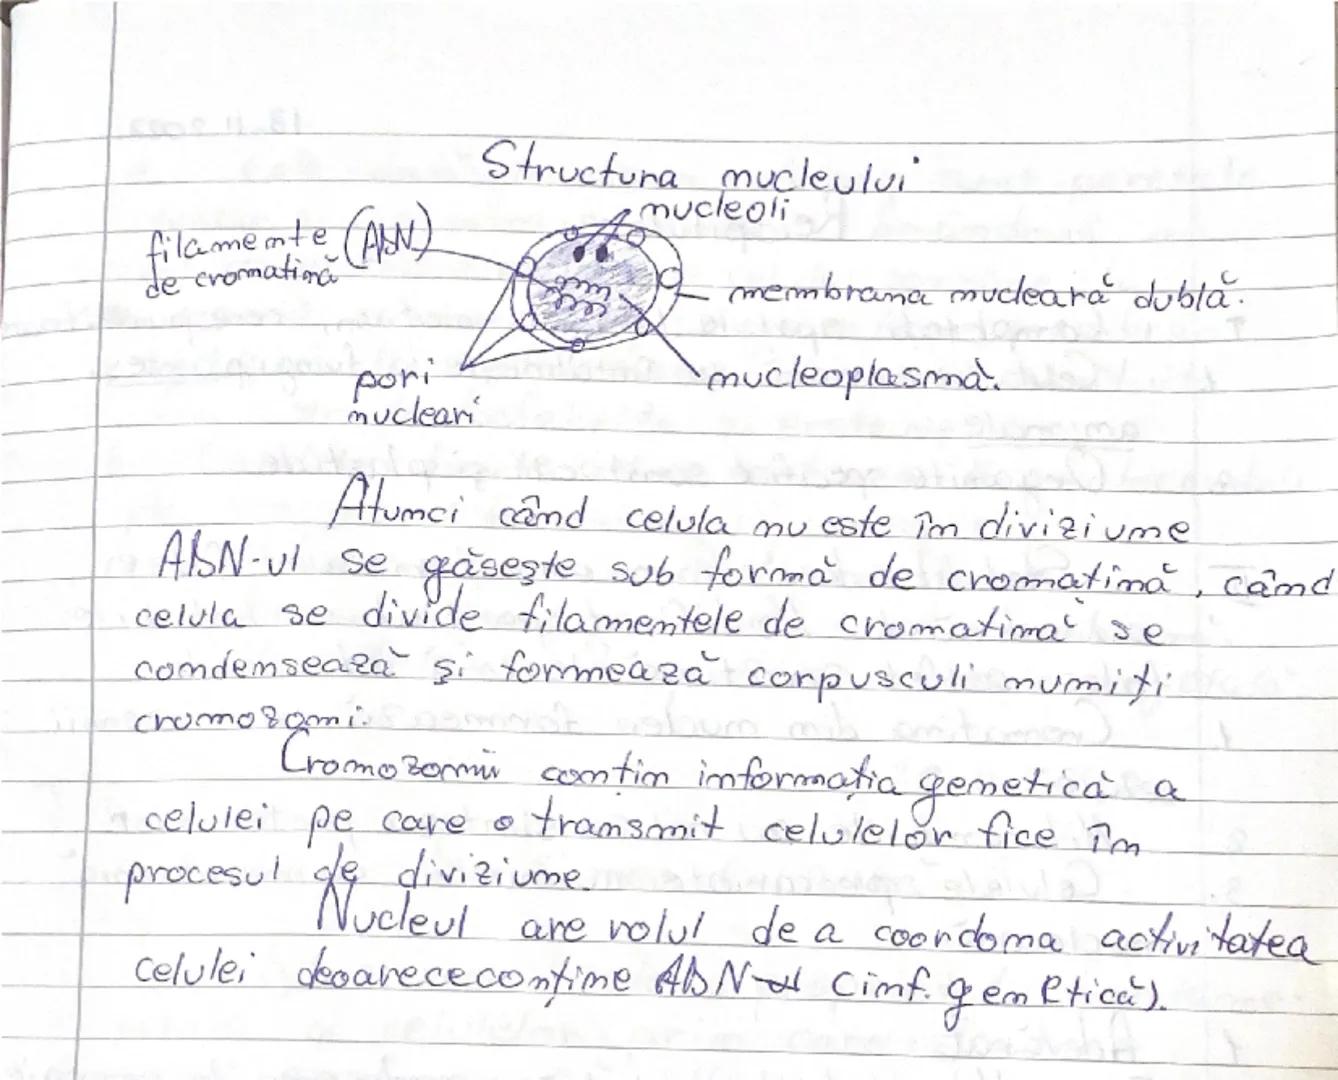 Structura nucleului
nucleoli
filamente (ADN)
de cromatină
membrana nucleară dublă.
pori
nucleari
nucleoplasmă.
Atunci când celula nu este în diviziune
ADN-ul se găsește sub formă de cromatină, când
celula se divide filamentele de cromatină se
condensează și formează corpusculi numiți
cromozomi.
Cromozomii conțin informația genetică a
celulei pe care o transmit celulelor fice în
procesul de diviziune.
Nucleul are rolul de a coordona activitatea
celulei deoarece conține ADN-ul (inf. genetică).